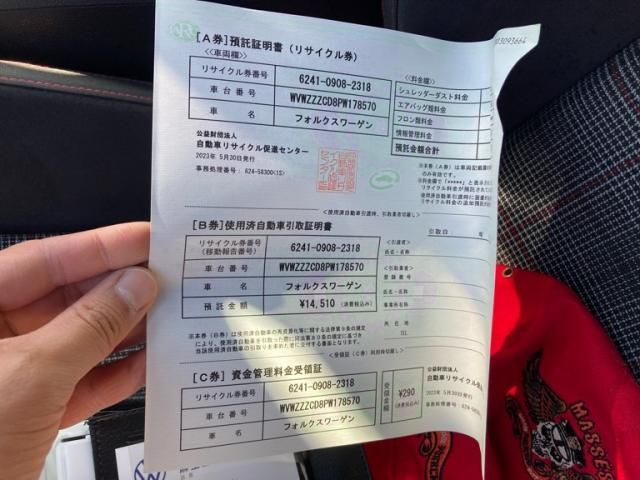 [A券]預託証明書(リサイクル券)
≪車両欄≫
リサイクル券番号 6241-0908-2318
車台番号 WVWZZZCD8PW178570
車名 フォルクスワーゲン
≪料金欄≫
シュレッダーダスト料金
エアバッグ類料金
フロン類料金
情報管理料金
預託金額合計
公益財団法人
自動車リサイクル促進センター
2023年 5月30日発行
事務処理番号: 624-58300(1S)
<使用済自動車引渡時、引取業者切離し>
[B券]使用済自動車引取証明書
引取日: 年
リサイクル券番号
(移動報告番号) 6241-0908-2318
車台番号 WVWZZZCD8PW178570
車名 フォルクスワーゲン
預託金額 ¥14,510 (消費税込み)
<引渡者>
氏名・名称
<引取業者>
登録番号
氏名・名称
事業所名
所在地
TEL
[C券]資金管理料金受領証
リサイクル券番号 6241-0908-2318
車台番号 WVWZZZCD8PW178570
車名 フォルクスワーゲン
受領金額 ¥290
(消費税込み)
公益財団法人
自動車リサイクル促
2023年 5月30日発
事務処理番号: 624-58
MASSES